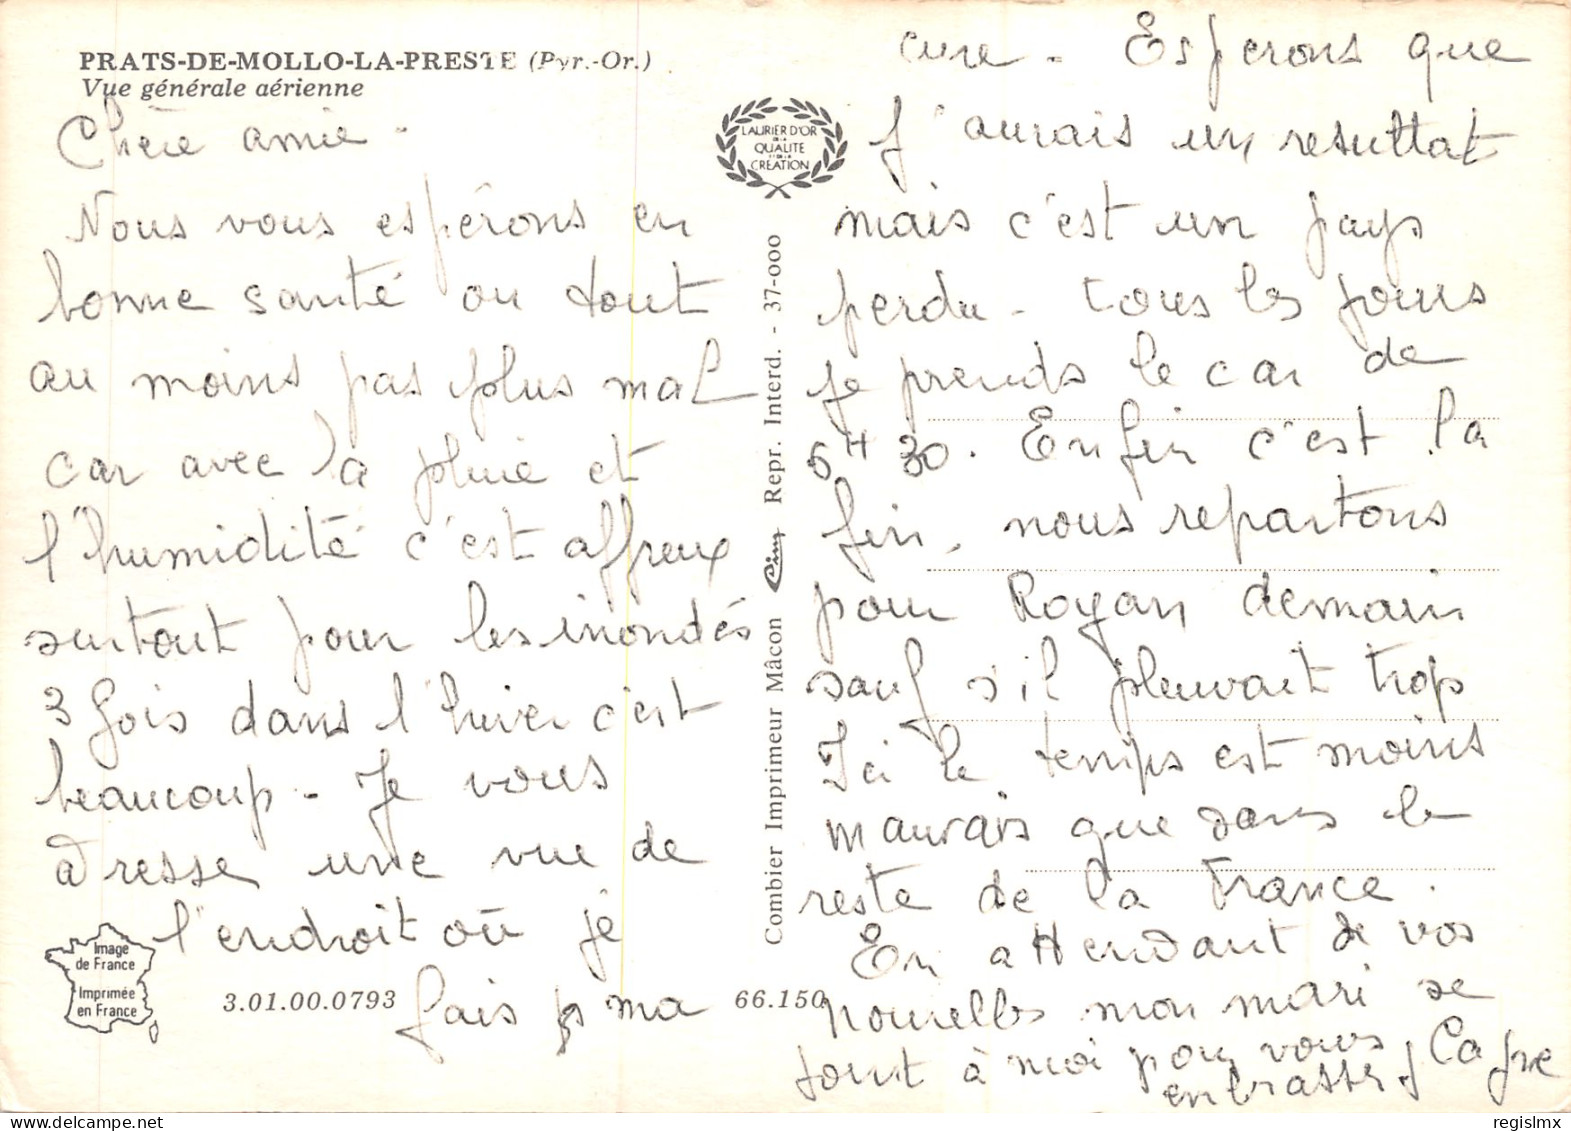 PRATS-DE-MOLLO-LA-PRESTE (Pyr.-Or.)
Vue générale aérienne
Chère amie.
Nous vous espérons en
bonne santé ou tout
au moins pas plus mal
car avec la pluie et
l'humidité c'est affreux
surtout pour les inondés
3 fois dans l'hiver c'est
beaucoup. Je vous
adresse une vue de
l'endroit où je
fais ma
Image
de France
Imprimée
en France
3.01.00.0793
66.150
LAURIER D'OR
DE LA
QUALITE
ET DE LA
CREATION
Combier Imprimeur Mâcon Cim Repr. Interd. - 37-000
cure. Esperons que
j'aurais un resultat
mais c'est un pays
perdu. Tous les jours
je prends le car de
6H30. Enfin c'est la
fin, nous repartons
pour Royan demain
sauf s'il pleuvait trop
Ici le temps est moins
mauvais que dans le
reste de la France.
En attendant de vos
nouvelles mon mari se
joint à moi pour vous
embrasser
regislmx